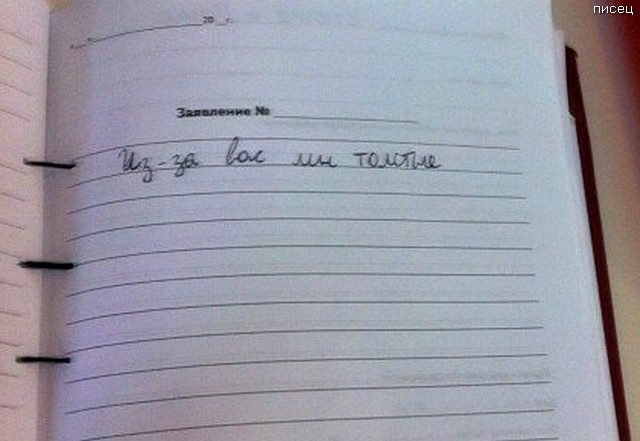 писец
"__" ____________ 20__ г.
Заявление № ____________
Из-за вас мы толстые